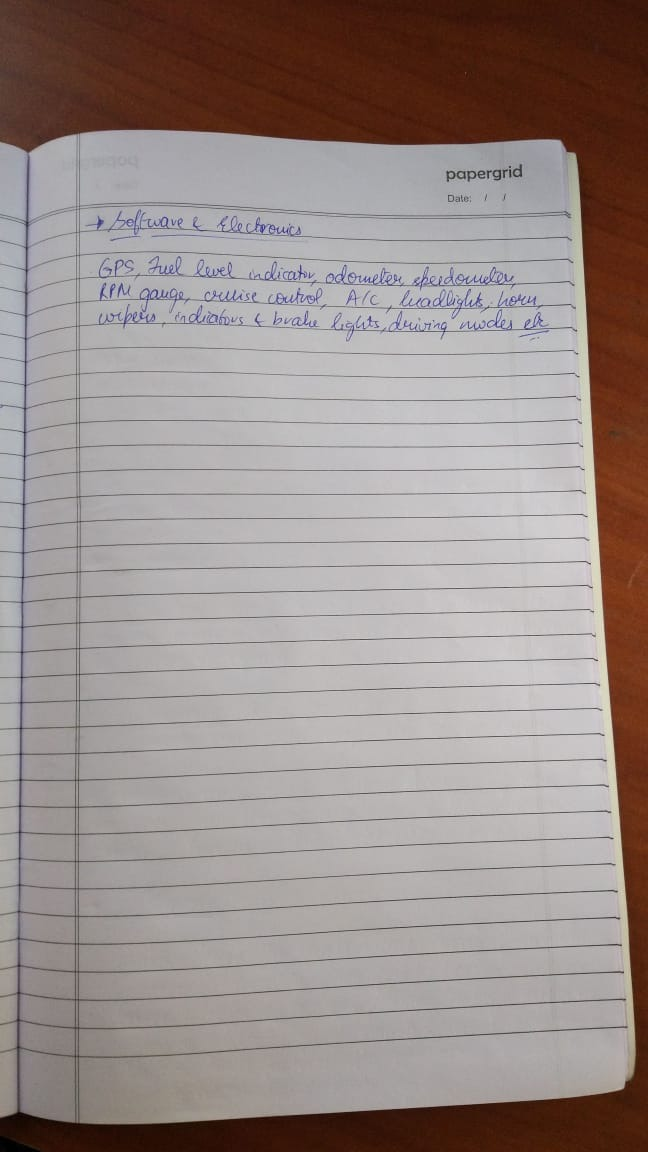 papergrid
Date: / /
→ Software & Electronics
GPS, Fuel level indicator, odometer, speedometer,
RPM gauge, cruise control, A/C, headlights, horn,
wipers, indicators & brake lights, driving modes etc